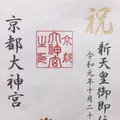 祝
新天皇御即位
令和元年十月二十
京都大神宮